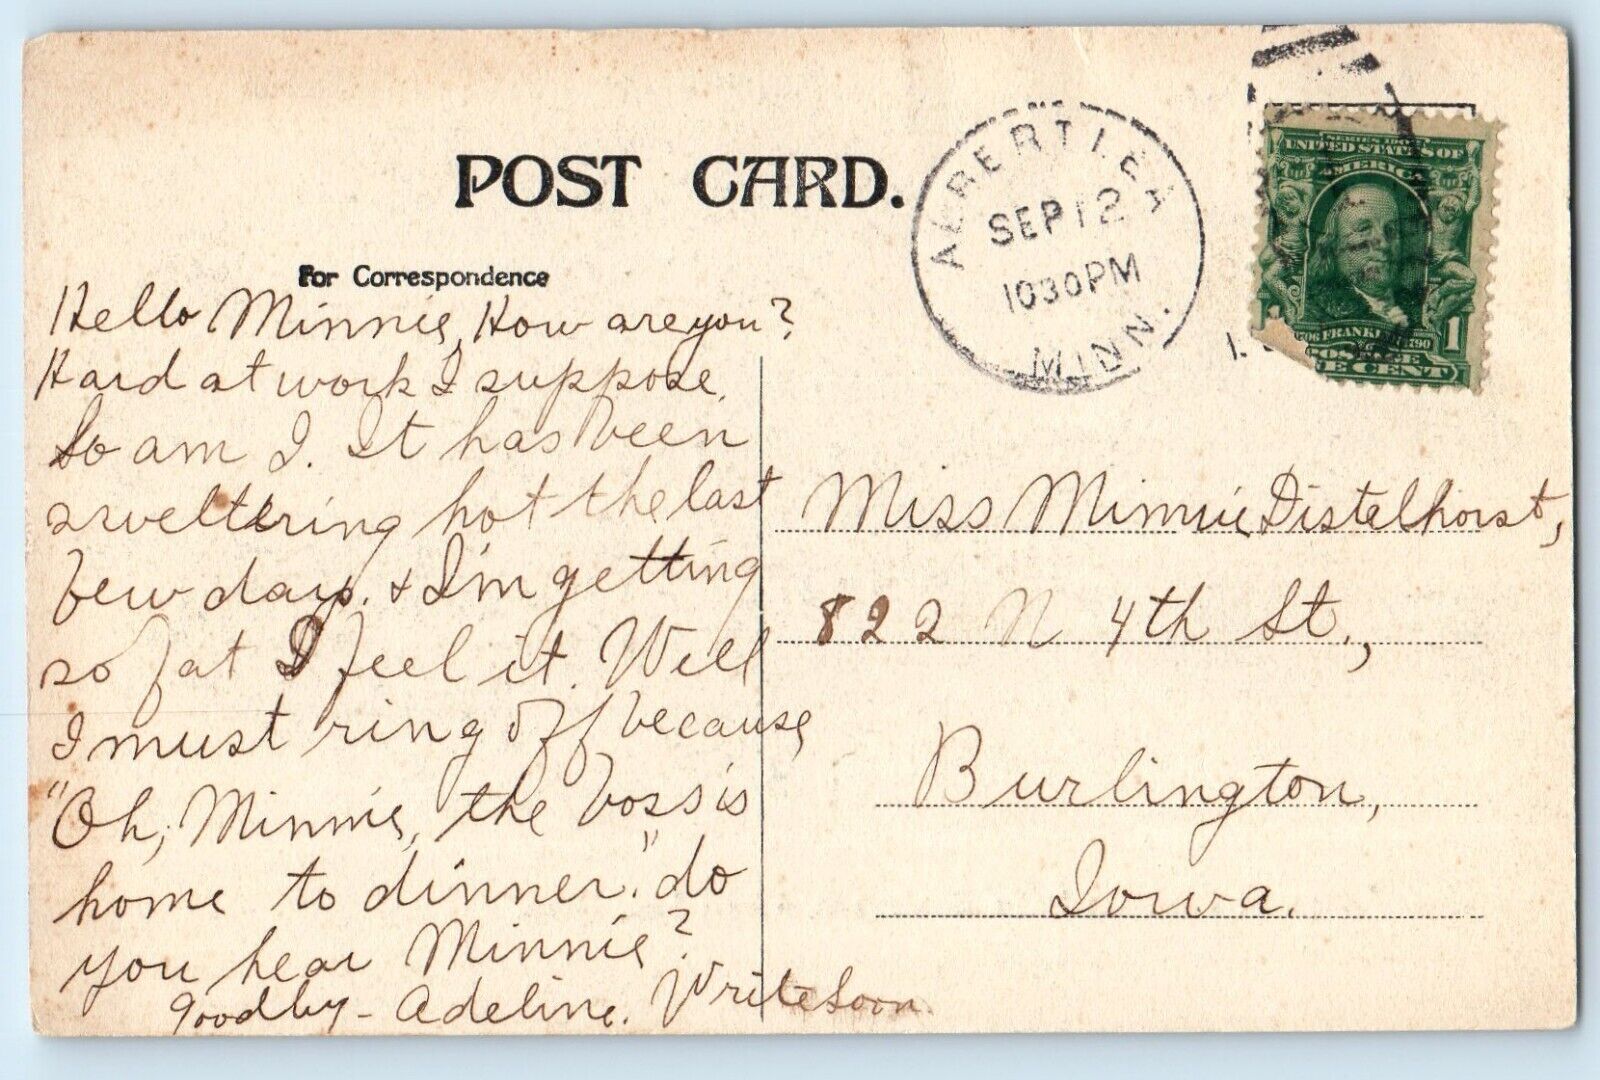 POST CARD.
For Correspondence
ALBERT LEA
SEP 12
1030PM
MINN.
SERIES 1902
UNITED STATES OF
AMERICA
FRANKLIN 1790
POSTAGE
1 1
CENT
Hello Minnie, How are you?
Hard at work I suppose.
So am I. It has been
sweltering hot the last
few days. & I'm getting
so fat I feel it. Well
I must ring off because
"Oh, Minnie, the boss is
home to dinner." do
you hear Minnie?
Goodby - Adeline. Write Soon.
Miss Minnie Distelhorst,
822 N 4th St.,
Burlington,
Iowa.